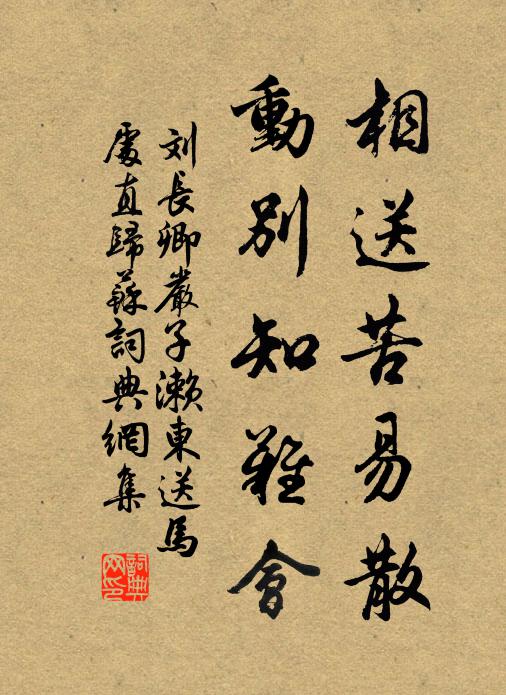 相送苦易散
動別知難會
刘長卿嚴子瀨東送馬
處直歸蘇詞典網集
詞典
网印